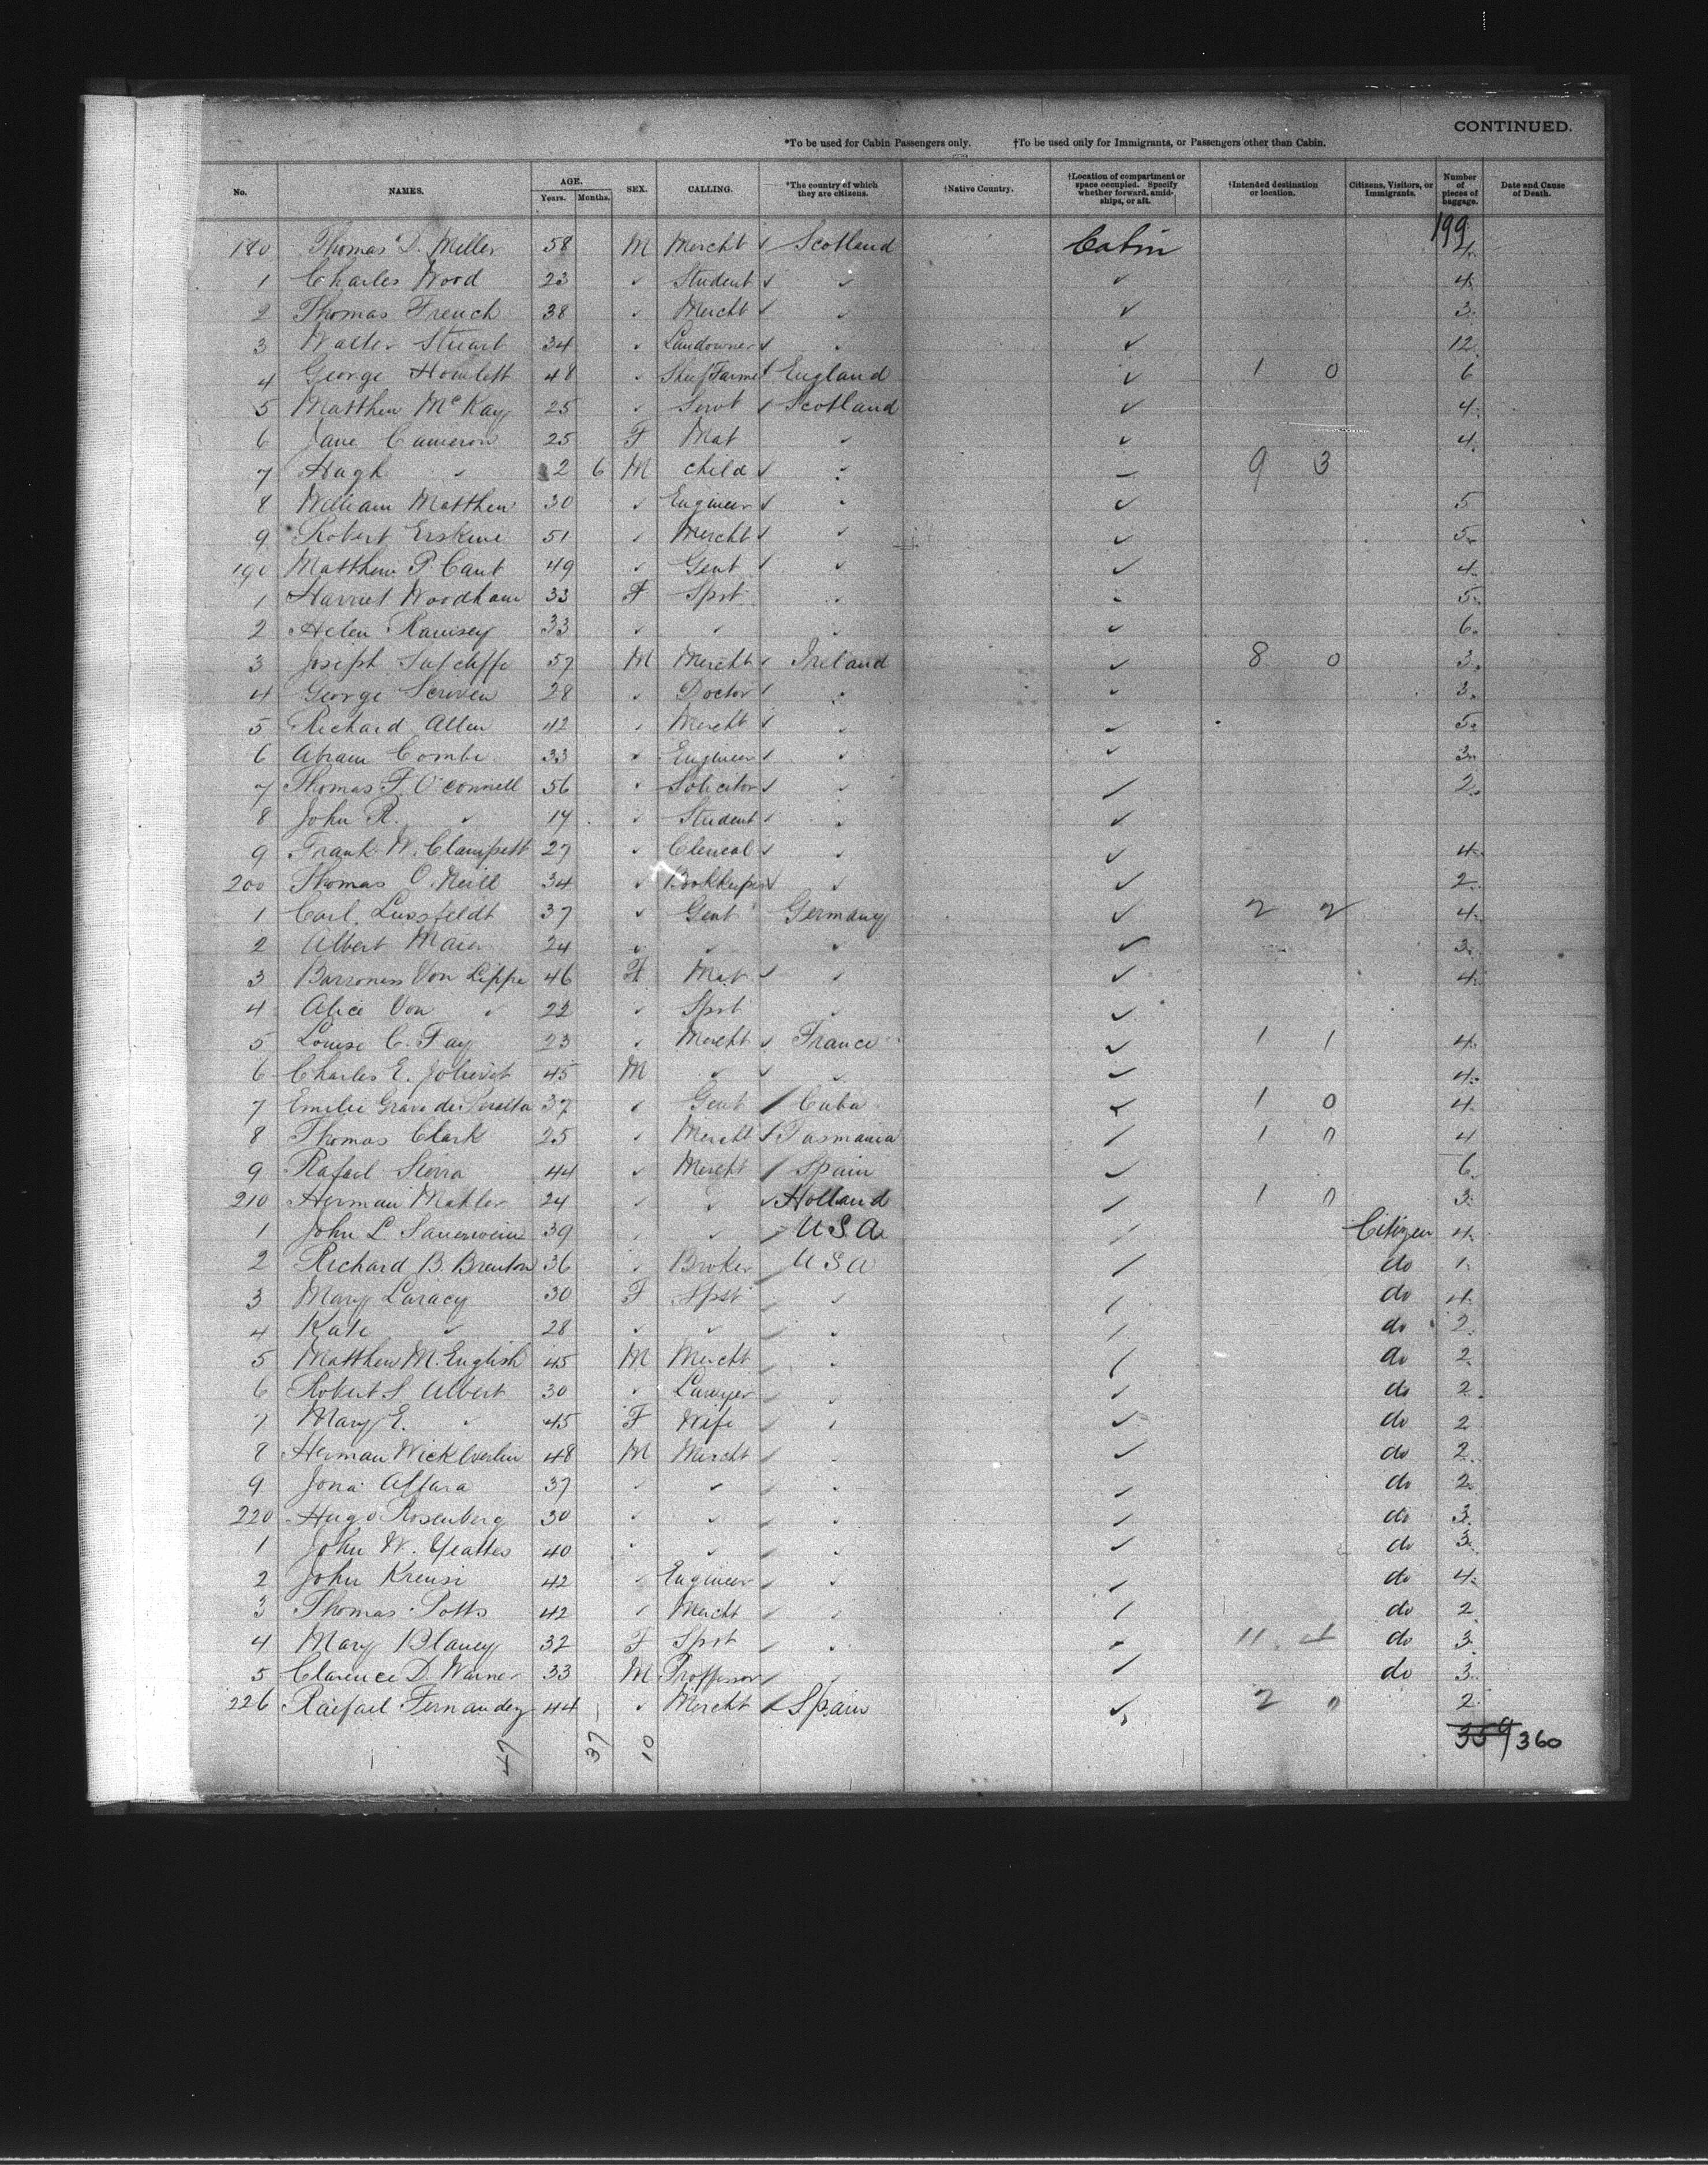 CONTINUED.
*To be used for Cabin Passengers only. †To be used only for Immigrants, or Passengers other than Cabin.
No. NAMES. AGE. Years. Months. SEX. CALLING. *The country of which they are citizens. †Native Country. †Location of compartment or space occupied. Specify whether forward, amidships, or aft. †Intended destination or location. Citizens, Visitors, or Immigrants. Number of pieces of baggage. Date and Cause of Death.
199
180 Thomas D. Miller 58 M Mercht Scotland Cabin 4
1 Charles Wood 23 " Student " " 4
2 Thomas French 38 " Mercht " " 3
3 Walter Stuart 34 " Landowner " " 12
4 George Howlett 48 " Farmer England " 1 0 6
5 Matthew McKay 25 " Servt Scotland " 4
6 Jane Cameron 25 F Mat " " 4
7 Hugh " 2 6 M child " " 9 3
8 William Matthew 30 " Engineer " " 5
9 Robert Erskine 51 " Mercht " " 5
190 Matthew P. Cant 49 " Gent " " 4
1 Harriet Woodham 33 F Spst " " 5
2 Helen Ramsey 33 " " " " 6
3 Joseph Sutcliffe 57 M Mercht Ireland " 8 0 3
4 George Scriven 28 " Doctor " " 3
5 Richard Allen 42 " Mercht " " 5
6 Abram Combe 33 " Engineer " " 3
7 Thomas F. O'connell 56 " Solicitor " " 2
8 John R. " 17 " Student " "
9 Frank W. Clampett 27 " Clerical " " 4
200 Thomas O. Neill 34 " Bookkeeper " " 2
1 Carl 37 " Gent Germany " 2 2 4
2 Albert Maier 24 " " " " 3
3 Barroness Von Lippe 46 F Mat " " 4
4 Alice Von " 22 " Spst " "
5 Louise C. Fay 23 " Mercht France " 1 1 4
6 Charles E. 45 M " " " 4
7 Emilie Grave de Peralta 37 " Gent Cuba " 1 0 4
8 Thomas Clark 25 " Mercht Tasmania " 1 0 4
9 Rafael Sierra 44 " Mercht Spain " 6
210 Herman Mahler 24 " " Holland " 1 0 3
1 John L Sauerwein 39 " " U S A " Citizen 4
2 Richard B. Brenton 36 " Broker U S A " do 1
3 Mary Laracy 30 F Spst " " do 4
4 Kate " 28 " " " " do 2
5 Matthew M. English 45 M Mercht " " do 2
6 Robert S Albert 30 " Lawyer " " do 2
7 Mary E. " 45 F Wife " " do 2
8 Herman 48 M Mercht " " do 2
9 37 " " " " do 2
220 Hugo Rosenberg 30 " " " " do 3
1 John W. Yeattes 40 " " " " do 3
2 John Kreusi 42 " Engineer " " do 4
3 Thomas Potts 42 " Mercht " " do 2
4 Mary Blaney 32 F Spst " " 11 4 do 3
5 Clarence D. Warner 33 M Proffessor " " do 3
226 Raifael Fernandez 44 " Mercht Spain " 2 0 2
47 37 10 359 360